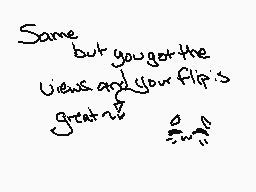 Same
but you got the
views and your flip is
great~